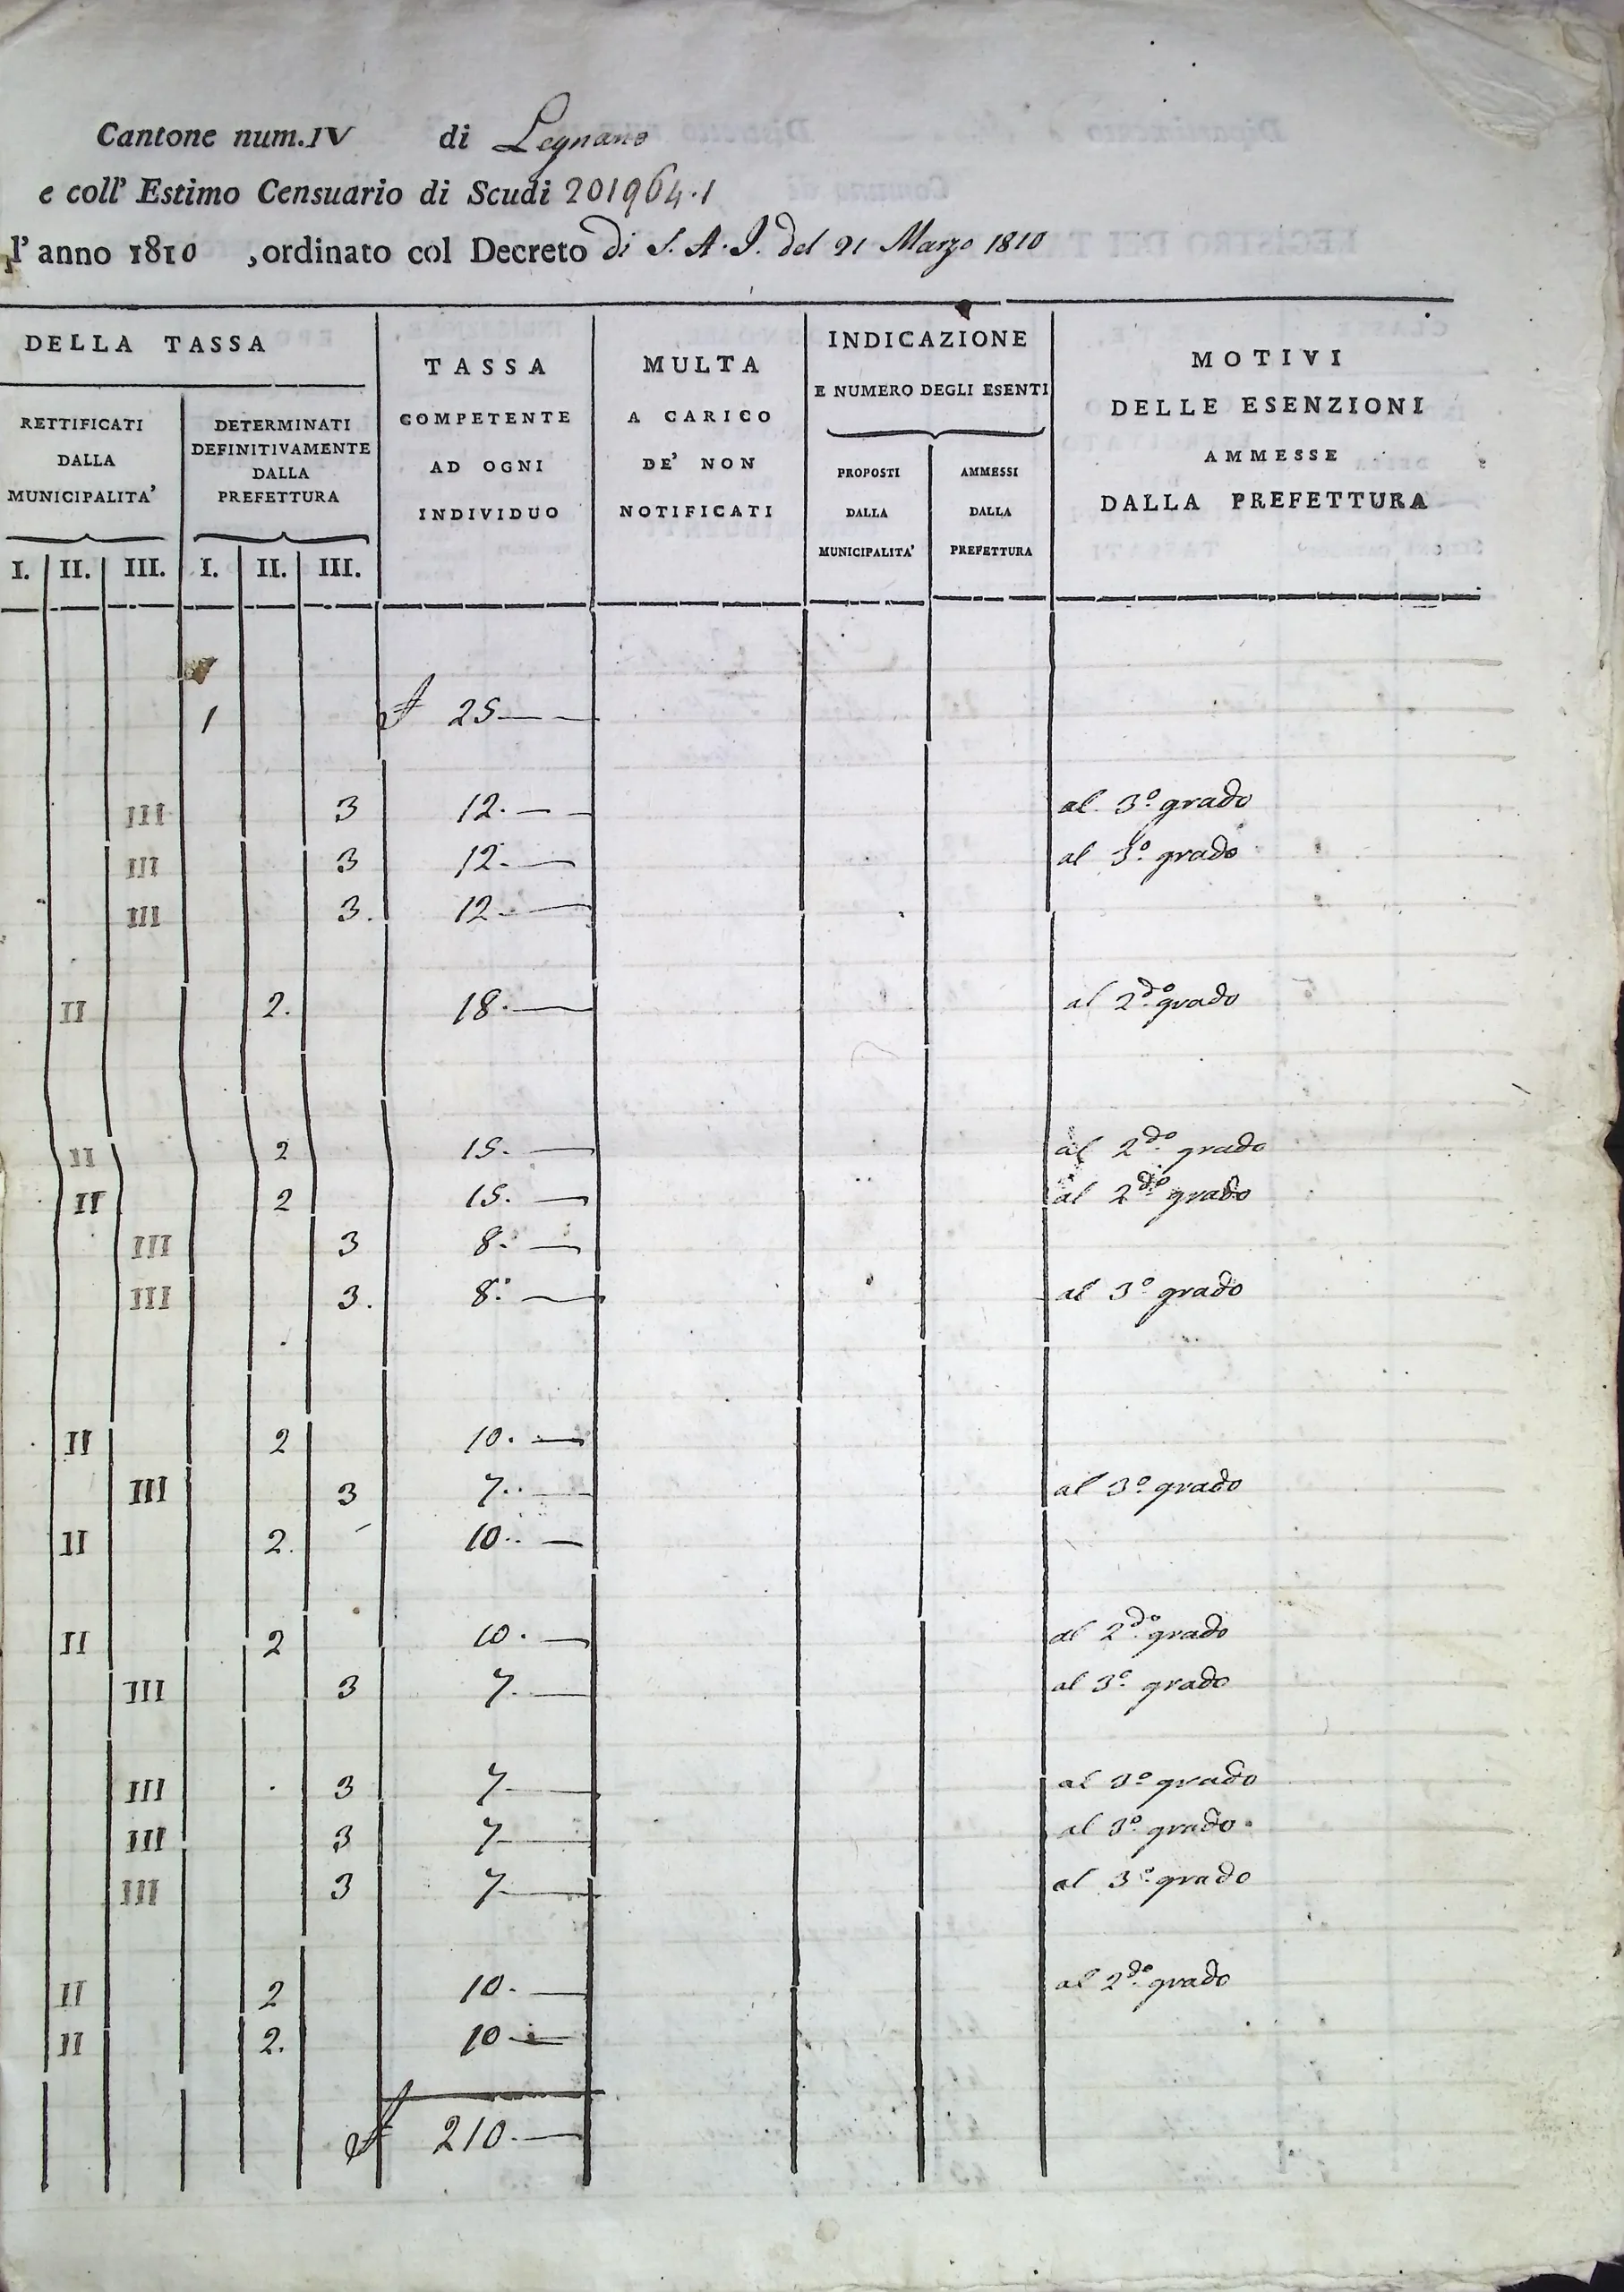 Cantone num. IV di Legnano
e coll' Estimo Censuario di Scudi 201964.1
l'anno 1810 , ordinato col Decreto di S. A. I. del 21 Marzo 1810
DELLA TASSA
RETTIFICATI DALLA MUNICIPALITA'
I. II. III.
DETERMINATI DEFINITIVAMENTE DALLA PREFETTURA
I. II. III.
TASSA COMPETENTE AD OGNI INDIVIDUO
MULTA A CARICO DE' NON NOTIFICATI
INDICAZIONE E NUMERO DEGLI ESENTI
PROPOSTI DALLA MUNICIPALITA'
AMMESSI DALLA PREFETTURA
MOTIVI DELLE ESENZIONI AMMESSE DALLA PREFETTURA
1 25
III 3 12. al 3º grado
III 3 12. al 3º grado
III 3. 12.
II 2. 18. al 2do grado
II 2 15. al 2do grado
II 2 15. al 2do grado
III 3 8.
III 3. 8. al 3º grado
II 2 10.
III 3 7. al 3º grado
II 2. 10.
II 2 10. al 2do grado
III 3 7. al 3º grado
III 3 7 al 3º grado
III 3 7 al 3º grado
III 3 7 al 3º grado
II 2 10. al 2do grado
II 2. 10
210.